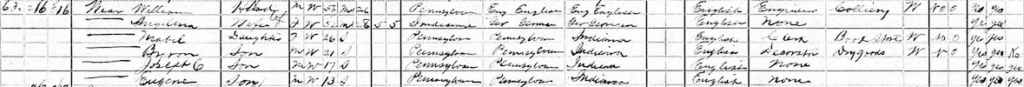 63 16 16 Wear William Head M W 53 M 26 Pennsylvania Eng English Eng English English Engineer Colliery W No 0 yes yes
Angelina Wife F W 52 M 26 5 5 Indiana Ger German Ger German English None yes yes
Mabel Daughter F W 26 S Pennsylvania Pennsylvania Indiana English Clerk Book Store W No 0 yes yes
Byron Son M W 21 S Pennsylvania Pennsylvania Indiana English Decorator Dry goods W No 0 yes yes No
Joseph C Son M W 17 S Pennsylvania Pennsylvania Indiana English None yes yes yes
Eugene Son M W 13 S Pennsylvania Pennsylvania Indiana English None yes yes yes